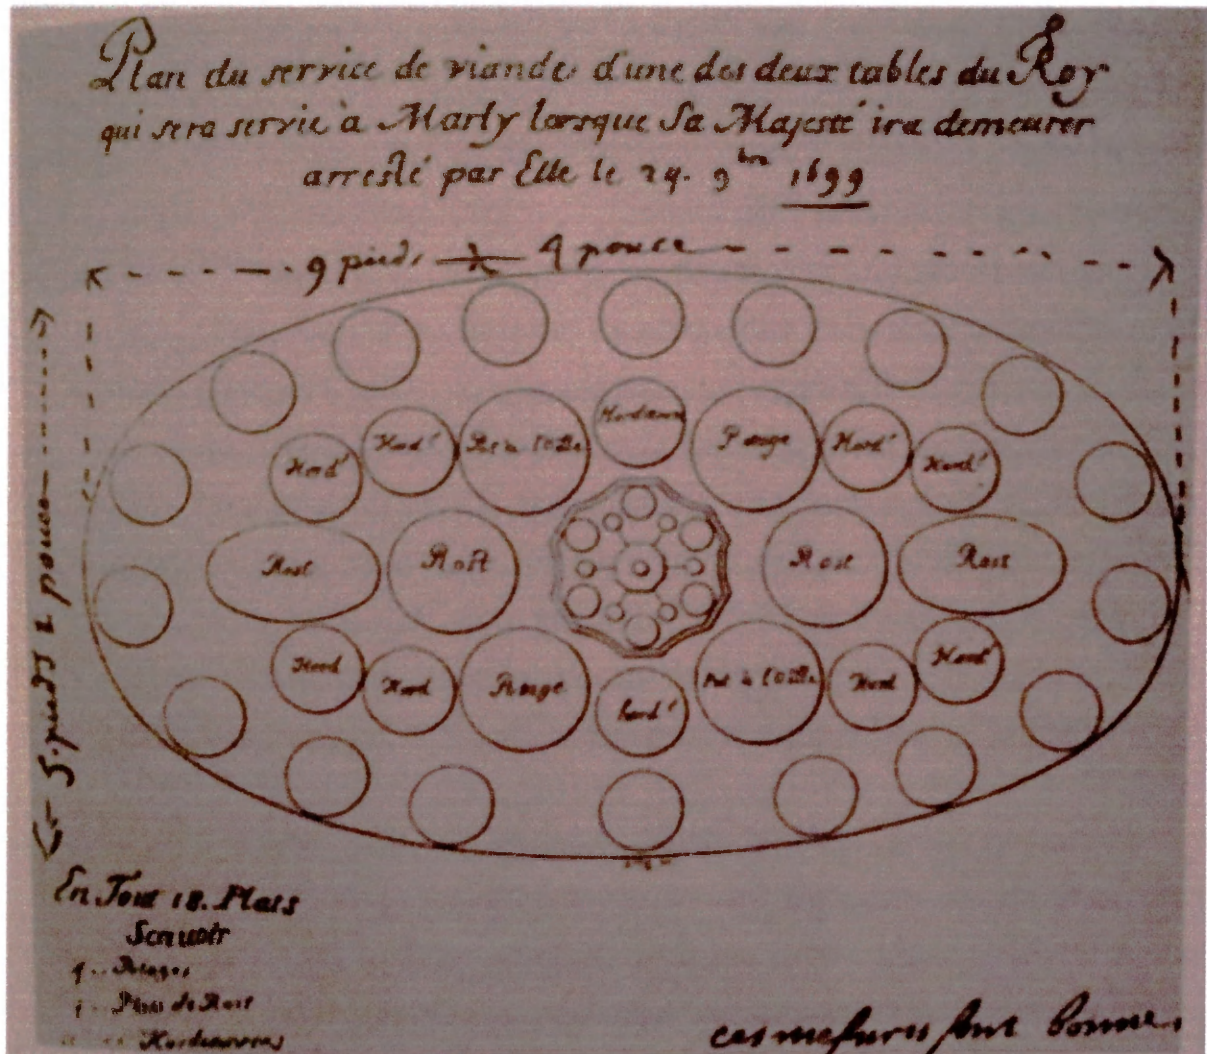 Plan du service de viande d'une des deux tables du Roy
qui sera servie à Marly lorsque Sa Majesté ira demeurer
arresté par Elle le 24. 9bre 1699
9 pieds 4 pouce
5. pieds 2 pouce
Hordeuvre
Hord' Hord' Pot à l'Oille Potage Hord' Hord'
Rost Rost Rost Rost
Hord Hord Potage hord' Pot à l'Oille Hord Hord'
En Tout 18. Plats
Scavoir
4 .. Potages
Plats de Rost
Hordeuvres
ces mesures sont bonnes